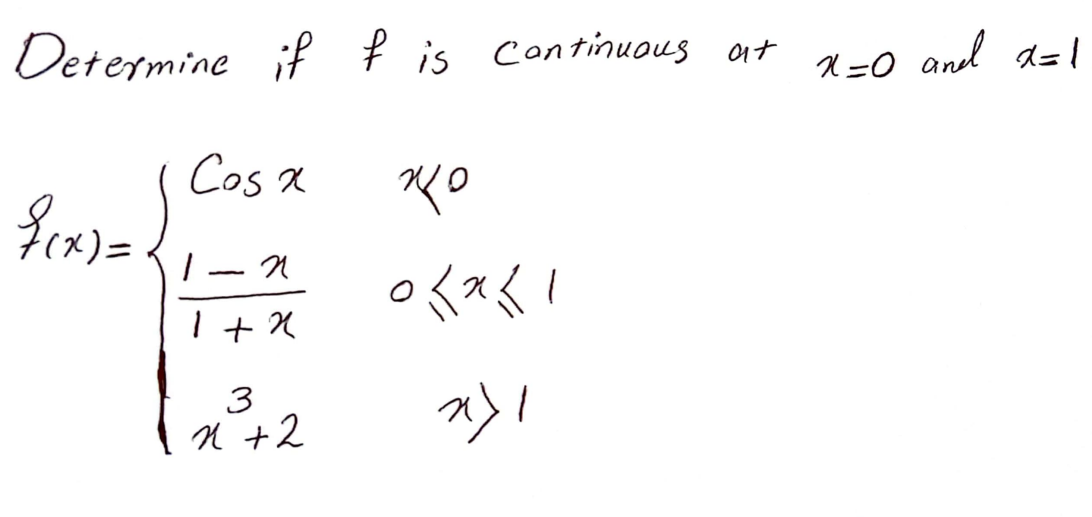 Determine if f is continuous at x=0 and x=1
f(x)= { Cos x x<0
1-x/1+x 0≤x≤1
x³+2 x>1